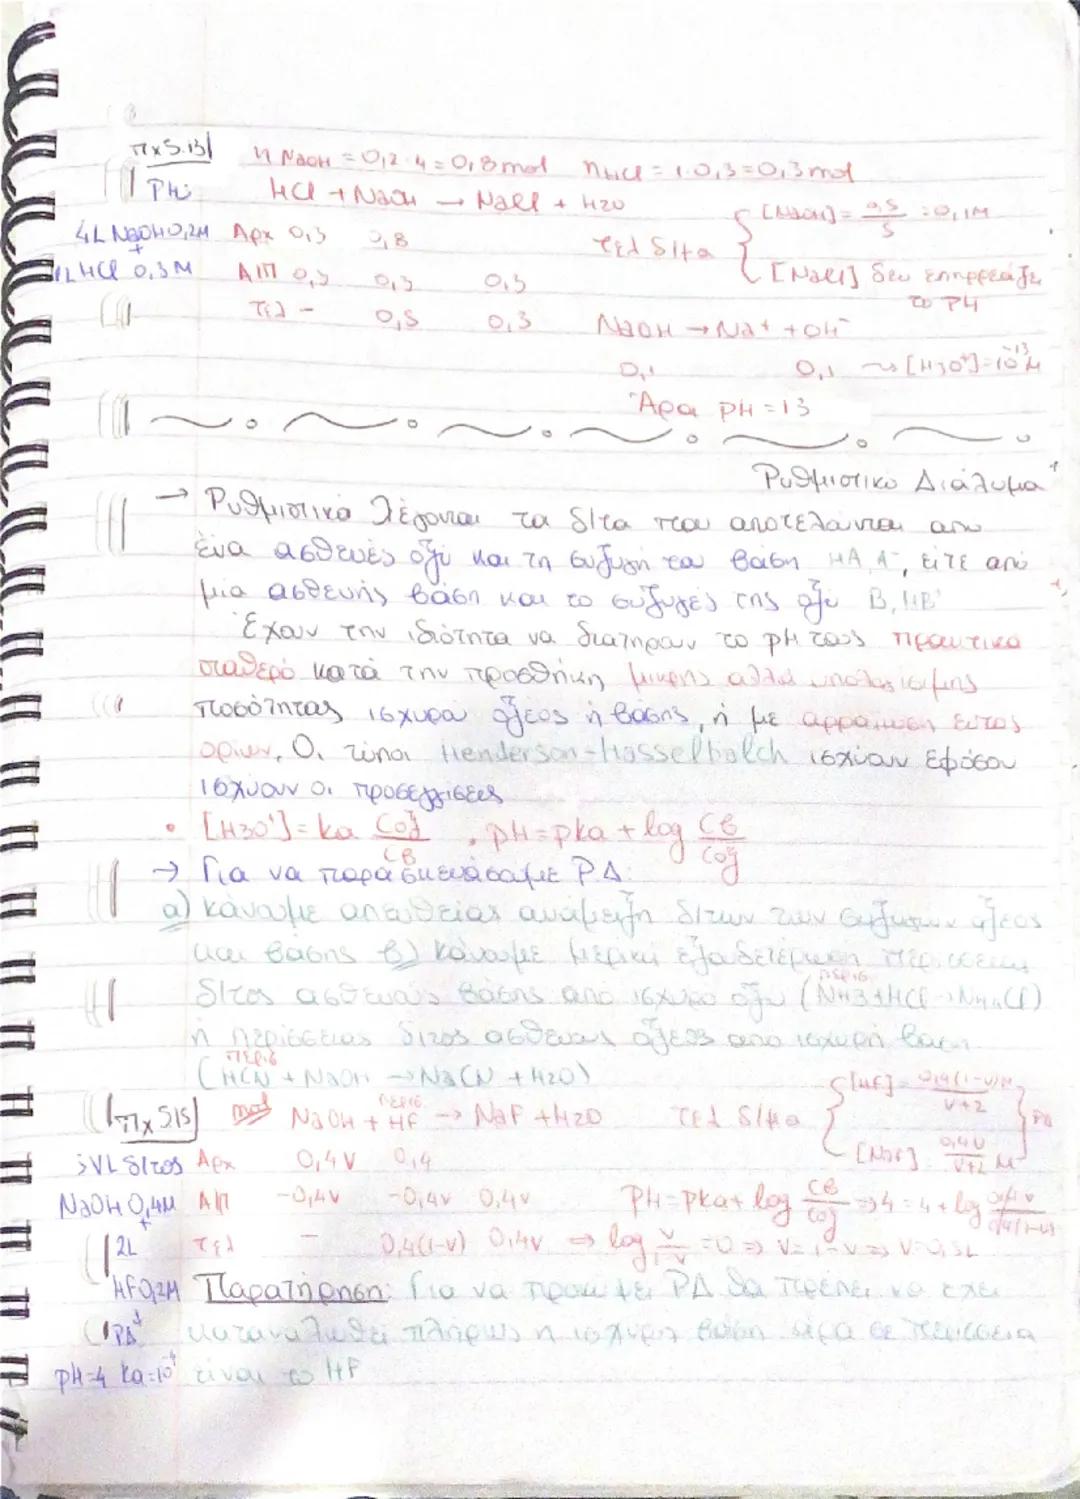 πχ5.13| n NaOH = 0,2·4 = 0,8mol nHCl = 1·0,3 = 0,3mol
PH; HCl + NaOH → NaCl + H2O
4L NaOH 0,2M Αρχ 0,3 0,8 τελ δ/μα { [NaOH] = 0,5/5 = 0,1M
+
1L HCl 0,3M Α|Π 0,3 0,3 0,3 [NaCl] δεν επηρρεάζει το PH
Τελ - 0,5 0,3 NaOH → Na+ + OH-
0,1 0,1 ~> [H3O+]=10^-13 M
Άρα pH = 13
Ρυθμιστικό Διάλυμα
→ Ρυθμιστικά λέγονται τα δ/τα που αποτελούνται από
ένα ασθενές οξύ και τη συζυγή του βάση HA, A-, είτε από
μια ασθενής βάση και το συζυγές της οξύ B, HB+
Έχουν την ιδιότητα να διατηρούν το pH τους πρακτικά
σταθερό κατά την προσθήκη μικρής αλλά υπολογίσιμης
ποσότητας ισχυρού οξέος ή βάσης, ή με αρραίωση εντός
ορίων. Οι τύποι Henderson-Hasselbalch ισχύουν εφόσον
ισχύουν οι προσεγγίσεις
• [H3O+] = ka Cοξ/Cβ , pH = pka + log Cβ/Cοξ
→ Για να παρασκευάσουμε Ρ.Δ:
α) κάνουμε απευθείας ανάμειξη δ/των των συζυγών οξέος
και βάσης β) κάνουμε μερική εξουδετέρωση περίσσειας
δ/τος ασθενούς βάσης από ισχυρό οξύ (NH3 περισ + HCl → NH4Cl)
ή περίσσειας δ/τος ασθενούς οξέος από ισχυρή βάση
(HCN περισ + NaOH → NaCN + H2O)
πχ 5.15| mol NaOH + HF περισ. → NaF + H2O τελ δ/μα { [HF] = 0,4(1-v)/v+2 M
; VL δ/τος Αρχ 0,4V 0,4 [NaF] = 0,4v/v+2 M } ΡΔ
NaOH 0,4M Α|Π -0,4v -0,4v 0,4v PH = pka + log Cβ/Cοξ => 4 = 4 + log 0,4v/0,4(1-v)
+
2L Τελ - 0,4(1-v) 0,4v => log v/1-v = 0 => v = 1-v => v = 0,5L
HF 0,2M Παρατήρηση: Για να προκύψει ΡΔ θα πρέπει να έχει
ΡΔ καταναλωθεί πλήρως η ισχυρή βάση άρα σε περίσσεια
pH=4 ka=10^-4 είναι το HF